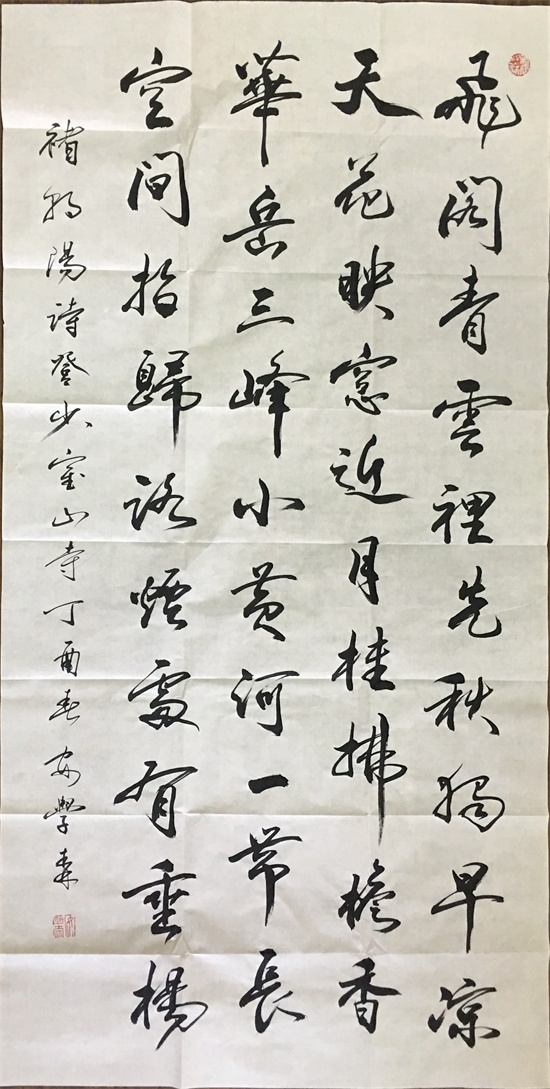 飛阁青雲裡先秋獨早凉
天花映窓近月桂拂檐香
華岳三峰小黄河一帶長
空间指歸路煙處有垂楊
褚朝陽诗登少室山寺丁酉春安學森